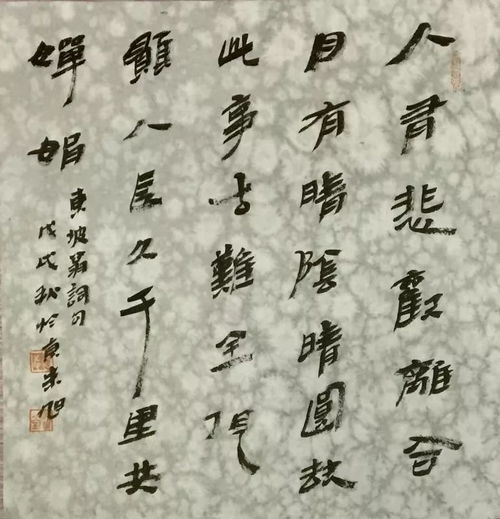 人有悲歡離合
月有晴陰晴圓缺
此事古難全但
願人長久千里共
嬋娟
東坡翁詞句
戊戌秋於京朱旭